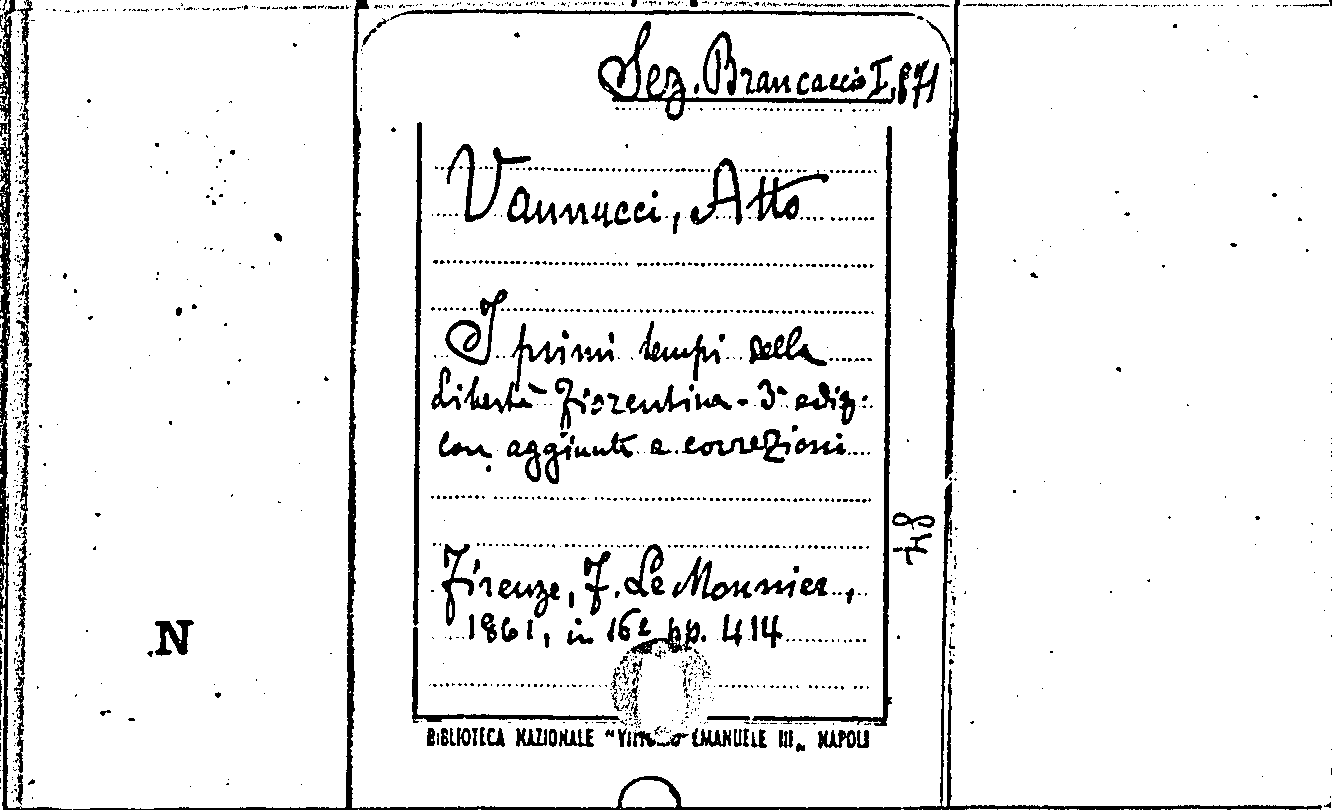 Sez. Brancaccio I, 871
Vannucci, Atto
I primi tempi della
libertà Fiorentina - 3ª ediz:
con aggiunte e correzioni
Firenze, F. Le Monnier,
1861, in 16º pp. 414
84
N
BIBLIOTECA NAZIONALE "VITTORIO EMANUELE III„ NAPOLI